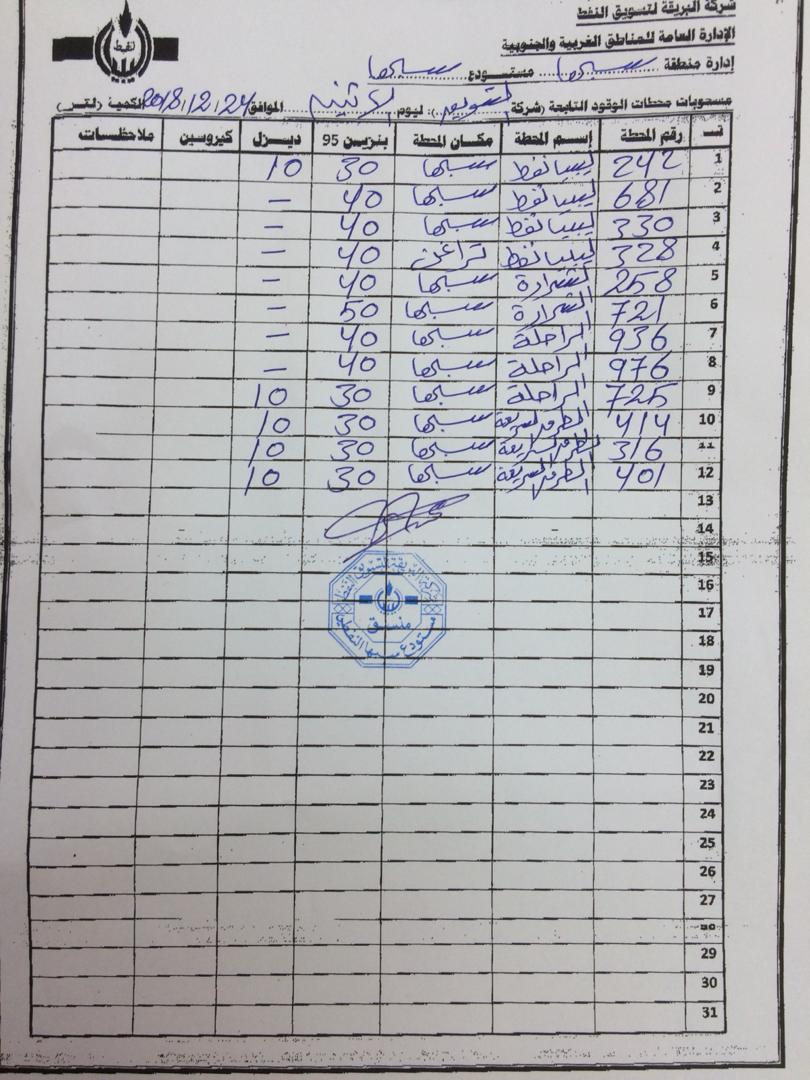 شركة البريقة لتسويق النفط
الإدارة العامة للمناطق الغربية والجنوبية
إدارة منطقة سبها مستودع سبها
نفط
مسحوبات محطات الوقود التابعة (شركة التوزيع): ليوم الاثنين الموافق 2018/12/24 الكمية (لتر)
ت رقم المحطة إسم المحطة مكان المحطة بنزين 95 ديزل كيروسين ملاحظات
1 242 ليبيا نفط سبها 30 10
2 681 ليبيا نفط سبها 40 –
3 330 ليبيا نفط سبها 40 –
4 328 ليبيا نفط تراغن 40 –
5 258 الشرارة سبها 40 –
6 721 الشرارة سبها 50 –
7 936 الراحلة سبها 40 –
8 976 الراحلة سبها 40 –
9 725 الراحلة سبها 30 10
10 414 الطرق السريعة سبها 30 10
11 316 الطرق السريعة سبها 30 10
12 401 الطرق السريعة سبها 30 10
13
14
15
16
17
18
19
20
21
22
23
24
25
26
27
29
30
31
شركة البريقة لتسويق النفط
منسق
مستودع سبها النفطي